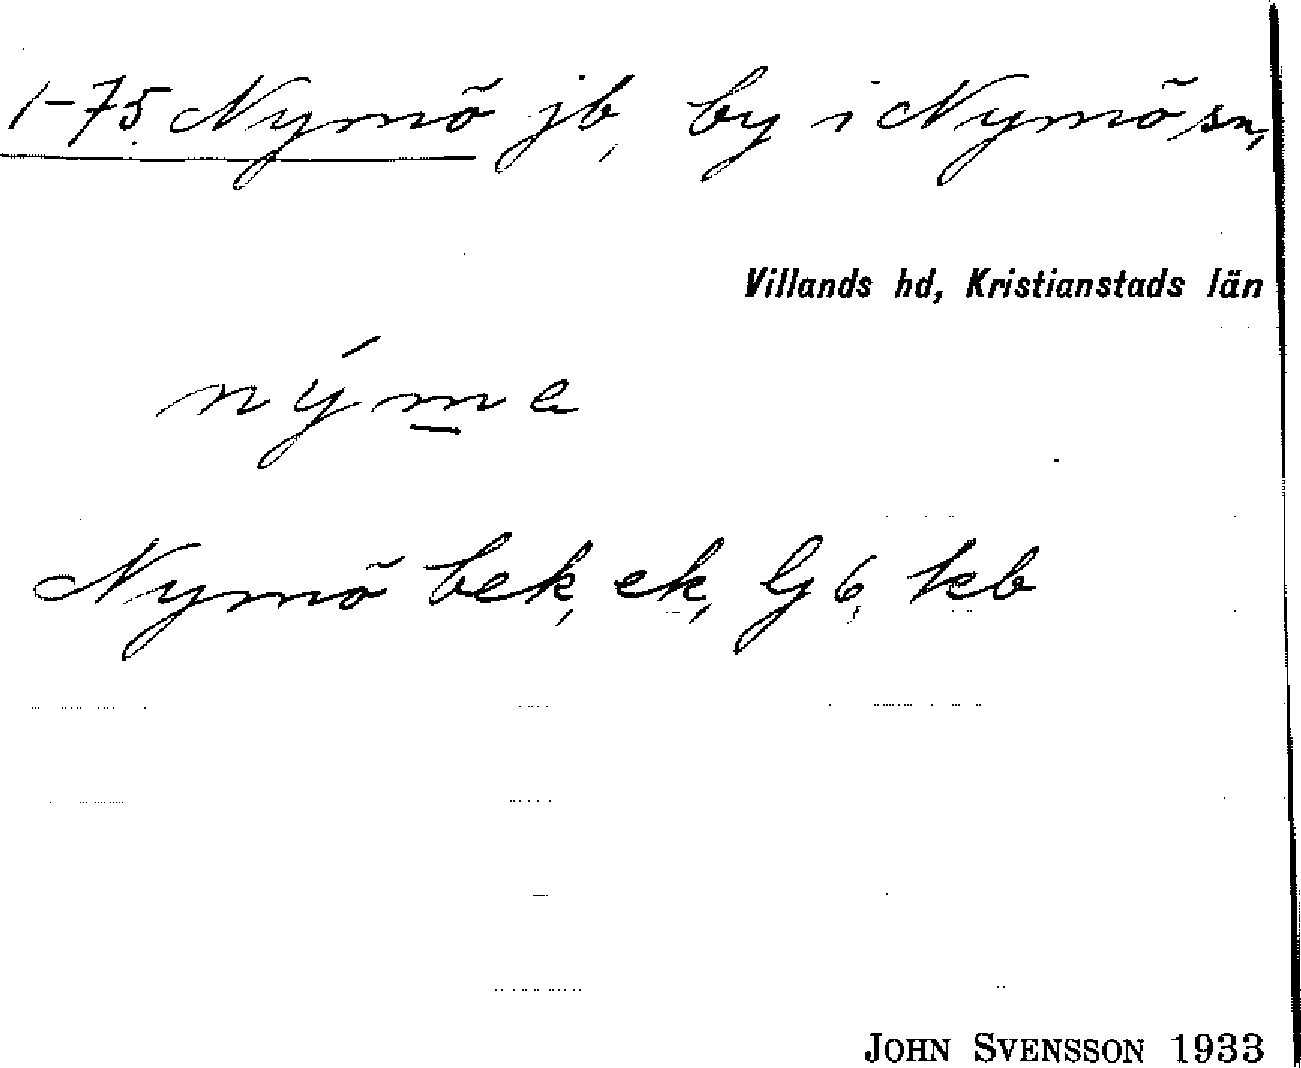 1-75. Nymö jb, by i Nymö sn,
Villands hd, Kristianstads län
nýme
Nymö bek, ek, Gj 6, kb
JOHN SVENSSON 1933